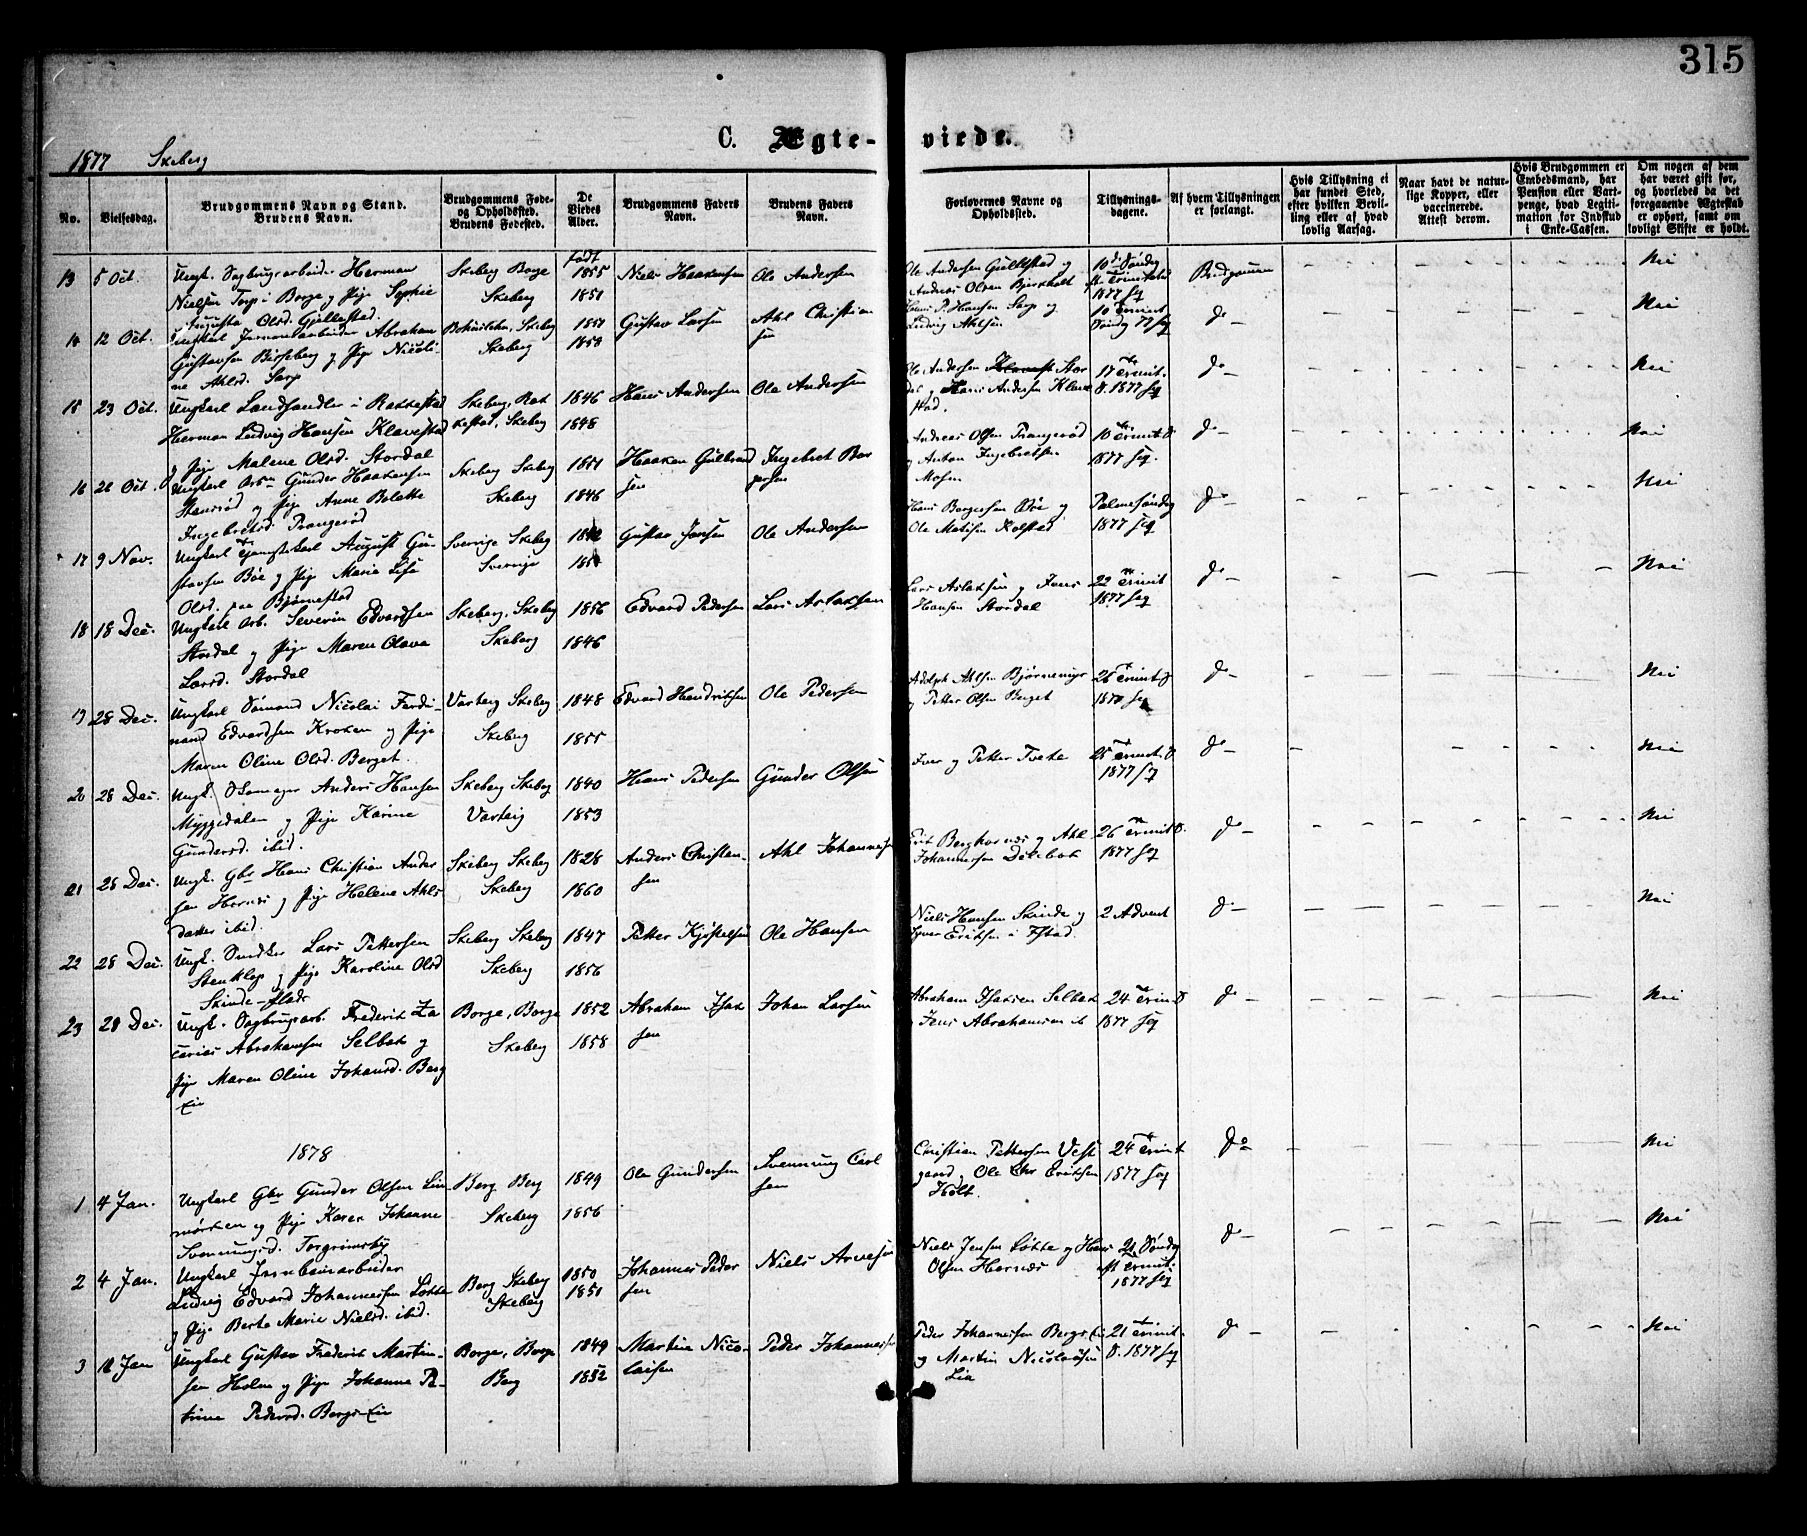 315
C. Ægte-viede.
1877 Skeberg
No.
Vielsesdag.
Brudgommens Navn og Stand.
Brudens Navn.
Brudgommens Føde-
og Opholdssted.
Brudens Fødested.
De
Viedes
Alder.
Brudgommens Faders
Navn.
Brudens Faders
Navn.
Forlovernes Navne og
Opholdssted.
Tillysnings-
dagene.
Af hvem Tillysningen
er forlangt.
Hvis Tillysning ei
har fundet Sted,
efter hvilken Bevil-
ling eller af hvad
lovlig Aarsag.
Naar havt de natur-
lige Kopper, eller
vaccinerede.
Attest derom.
Hvis Brudgommen er
Embedsmand, har
Pension eller Vart-
penge, hvad Legiti-
mation for Indskud
i Enke-Cassen.
Om nogen af dem
har været gift før,
og hvorledes da det
foregaaende Ægteskab
er ophørt, samt om
lovligt Skifte er holdt.
13 5 Oct. Ungk. Sagbrugsarbeid. Herman Skeberg Borge født 1855 Niels Haakensen Ole Andersen Ole Andersen Gullestad og 10de Søndag Brudgommen Nei
Nielsen Torp i Borge og Pige Sophie Skeberg 1851 Andreas Olsen Bjerkholt eft Trinitatis
Augusta Olsd. Gjellestad. 1877 flg
14 12 Oct. Ungkarl Jernarbeider Abraham Skeberg 1851 Gustav Larsen Axl Christian Hansen Sarp og 10 Trinit do Nei
Gustavsen og Pige Nicoli- Skeberg 1853 sen Ludvig Axelsen Søndg 77 flg
ne Axlsd. Sarp
15 23 Oct. Ungkarl Landhandler i Rakkestad Skeberg, Rak 1846 Hans Andersen Ole Andersen Ole Andersen Stor 17 Trinit. do Nei
Herman Ludvig Hansen Klavestad kestad, Skeberg 1848 dal og Hans Andersen Klave 1877 flg
og Pige Malene Olsd. Stordal stad.
16 26 Oct. Ungkarl Arbr Gunder Haakensen Skeberg Skeberg 1851 Haaken Gulbrand Ingebret Bor Andreas Olsen Prangerød 10 Trinit. do Nei
og Pige Anne Belatte Skeberg 1846 sen gersen og Anton Ingebretsen 1877 flg.
Ingebretsd. Prangerød Mosen
17 9 Nov. Ungkarl August Gu- Sverrige Skeberg Gustav Jansen Ole Andersen Hans Borgersen Bøe og Palmesøndag do Nei
stavsen Bøe og Pige Maria Lisa Sverrige Ole Matisen Kolstad 1877 flg
Olsd. paa Bjørnestad
18 18 Dec. Ungkarl Arb. Severin Edvardsen Skeberg, Skeberg 1856 Edvard Pedersen Lars Aslaksen Lars Aslaksen og Jens 22 Trinit do Nei
Stordal og Pige Maren Olava Skeberg 1846 Hansen Stordal 1877 flg
Larsd. Stordal
19 28 Dec. Ungkarl Sømand Nicolai Ferdi- Varteig Skeberg 1848 Edvard Hendriksen Ole Pedersen Adolph Axlsen Bjørnemyr do Nei
nand Edvardsen Kroken og Pige Skeberg 1855 og Petter Olsen Berget 1877 flg
Maren Oline Olsd. Berget.
20 28 Dec. Ungk. Anders Hansen Skeberg Skeberg 1840 Hans Pedersen Gunder Olsen Iver og Petter Tvete 25 Trinit. do Nei
Myggedalen og Pige Karine Varteig 1853 1877 flg
Gundersd. ibid.
21 28 Dec. Ungk. Gbr Hans Christian Ander Skeberg Skeberg 1828 Anders Christian- Axl Johannesen og Axl 26 Trinit do Nei
sen Hornes og Pige Helene Axls Skeberg 1860 sen Johannesen 1877 flg
datter ibid.
22 28 Dec. Ungk. Snedker Lars Pettersen Skeberg Skeberg 1847 Petter Kjøstelsen Ole Hansen Niels Hansen Skinde og 2 Advent do Nei
og Pige Karoline Olsd Skeberg 1856 Eriksen i Istad.
Skinde-plads
23 28 Dec. Ungk. Sagbrugsarb. Frederik Za Borge, Borge 1852 Abraham Isak Johan Larsen Abraham Isaksen Selbak 24 Trinit do Nei
carias Abrahamsen Selbak og Skeberg 1858 sen Jens Abrahamsen 1877 flg
Pige Maren Oline Johansd. Berg
Eie
1878
1 4 Jan. Ungkarl Gbr Gunder Olsen Berg Berg 1849 Ole Gundersen Svenning Carl Christian Pettersen Vest 24 Trinit do Nei
og Pige Karen Johanne Skeberg 1856 sen gaard, Ole Chr Eriksen 1877 flg
Svenningsd. Torgrimsby Holt.
2 4 Jan. Ungkarl Jernbanearbeider Berg Skeberg 1850 Johannes Peder Niels Arvesen Niels Jensen Løkke og Hans 21 Søndag do Nei
Ludvig Edvard Johannessen Løkke Skeberg 1851 sen Olsen Hornæs eft Trinit.
og Pige Berte Marie Nielsd. ibid. 1877 flg
3 Jan Ungkarl Gustav Frederik Martin- Borge, Borge 1849 Martin Nico- Peder Johannesen Peder Johannessen Bergs Eie 21 Trinit. do Nei
sen Holm og Pige Johanne Pe- Berg 1852 laisen og Martin Nicolaisen 1877 flg
trine Pedersd. Bergs Eie Lia